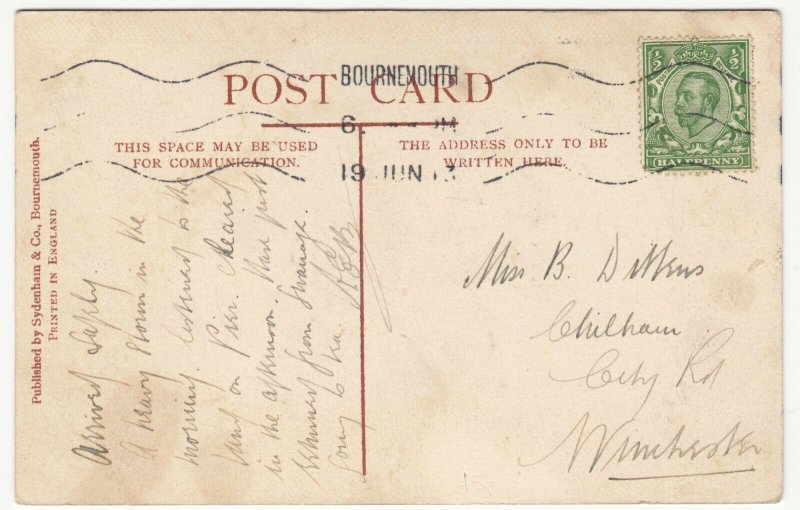 POST CARD
BOURNEMOUTH
6 PM
19 JUN 13
THIS SPACE MAY BE USED
FOR COMMUNICATION.
THE ADDRESS ONLY TO BE
WRITTEN HERE.
½ ½
POSTAGE
HALFPENNY
Published by Sydenham & Co., Bournemouth.
PRINTED IN ENGLAND
Arrived Safely.
A heavy storm in the
morning. Listened to the
band on Pier. Cleared
in the afternoon. Have just
returned from Swanage.
Going to tea.
Miss B. Dittens
Chilham
City Rd
Winchester